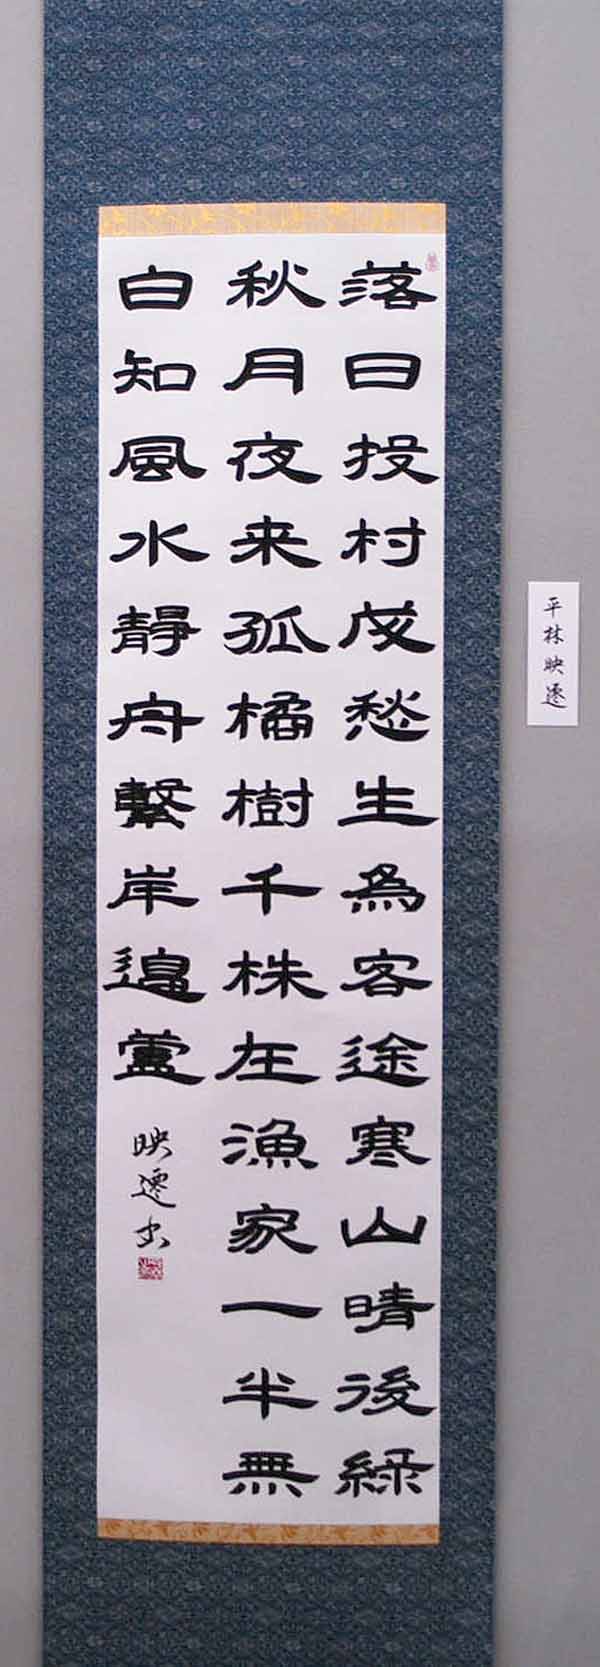 落日投村戍愁生為客途寒山晴後緑
秋月夜来孤橘樹千株在漁家一半無
白知風水靜舟繫岸邉蘆
映遷書
平林映遷